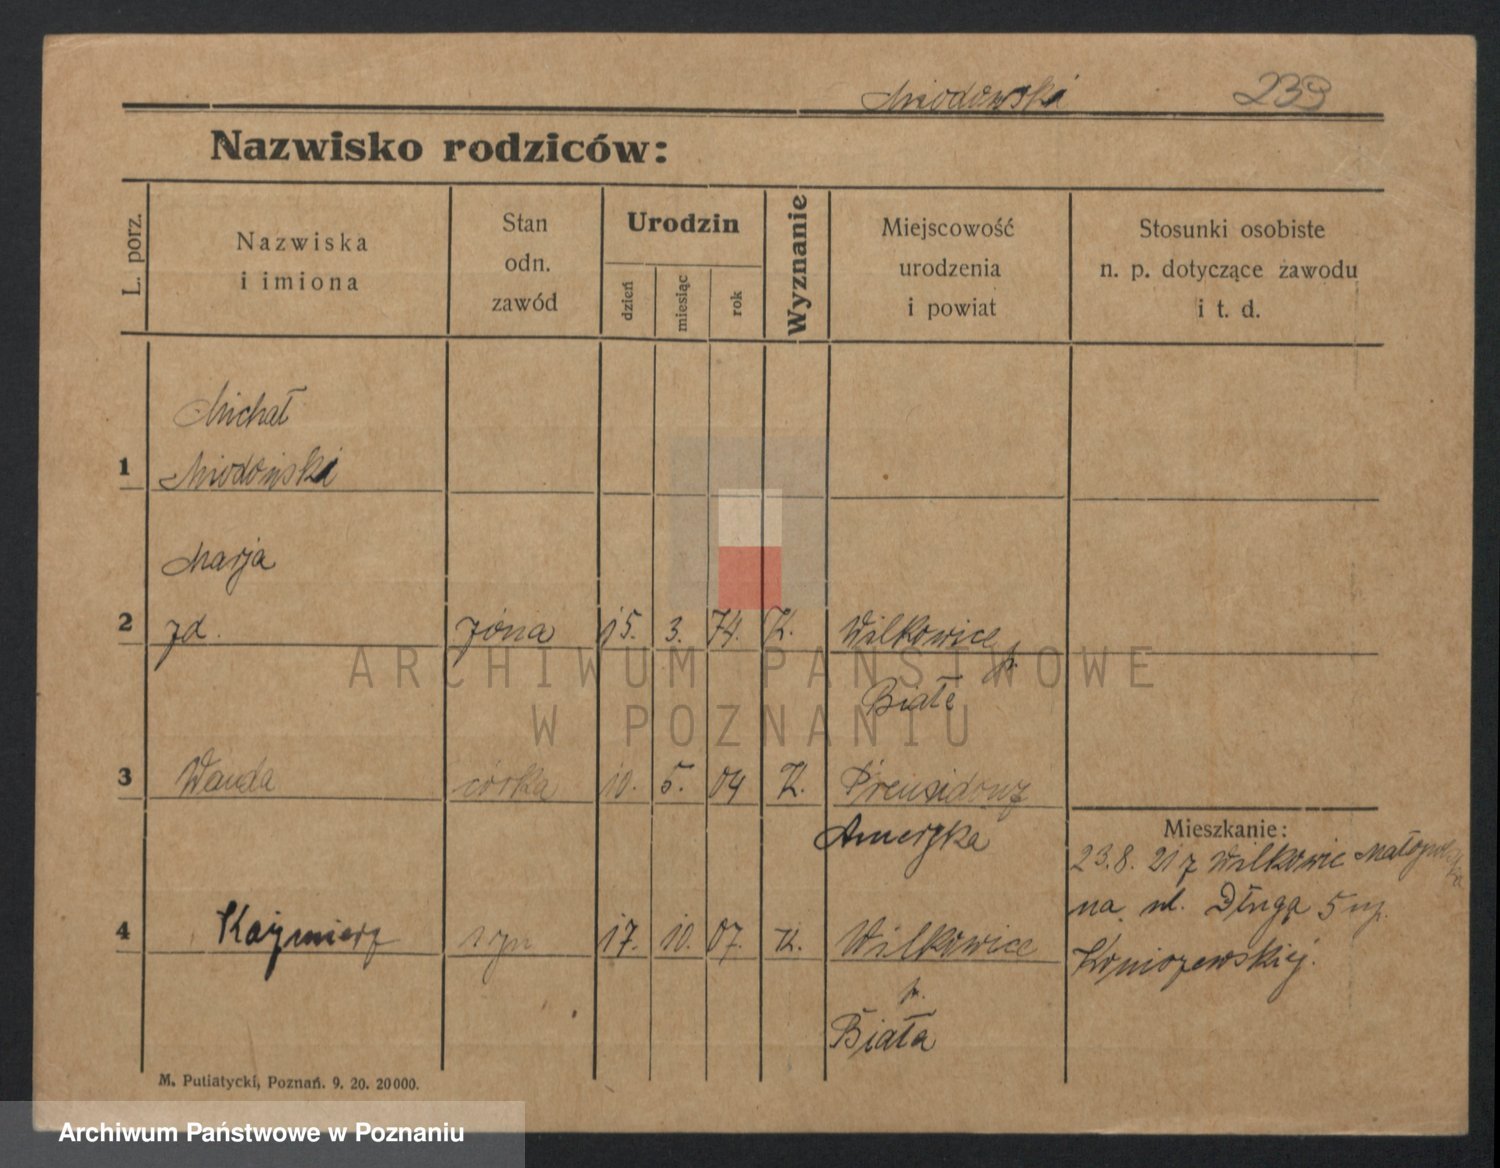 Miodowski 239
Nazwisko rodziców:
L. porz.
Nazwiska
i imiona
Stan
odn.
zawód
Urodzin
dzień
miesiąc
rok
Wyznanie
Miejscowość
urodzenia
i powiat
Stosunki osobiste
n. p. dotyczące zawodu
i t. d.
Michał
1 Miodoński
Marja
2 zd. żona 15. 3. 74. K. Wilkowice
p.
Białe
3 Wanda córka 10. 5. 04 K.
Ameryka
Mieszkanie:
23.8. 21 z Wilkowic
na ul. Długą 5 up.
4 Kazimierz syn 17. 10. 07. K. Wilkowice
Koniszewskiej.
p.
Biała
M. Putiatycki, Poznań. 9. 20. 20000.
ARCHIWUM PAŃSTWOWE
W POZNANIU
Archiwum Państwowe w Poznaniu